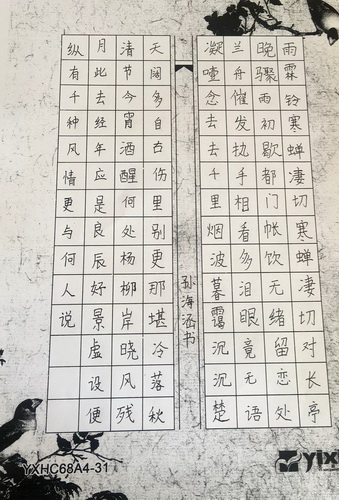 雨霖铃寒蝉凄切寒蝉凄切对长亭
晚骤雨初歇都门帐饮无绪留恋处
兰舟催发执手相看多泪眼竟无语
凝噎念去去千里烟波暮霭沉沉楚
天阔多自古伤里别更那堪冷落秋
清节今宵酒醒何处杨柳岸晓风残
月此去经年应是良辰好景虚设便
纵有千种风情更与何人说
孙海涵书
YXHC68A4-31